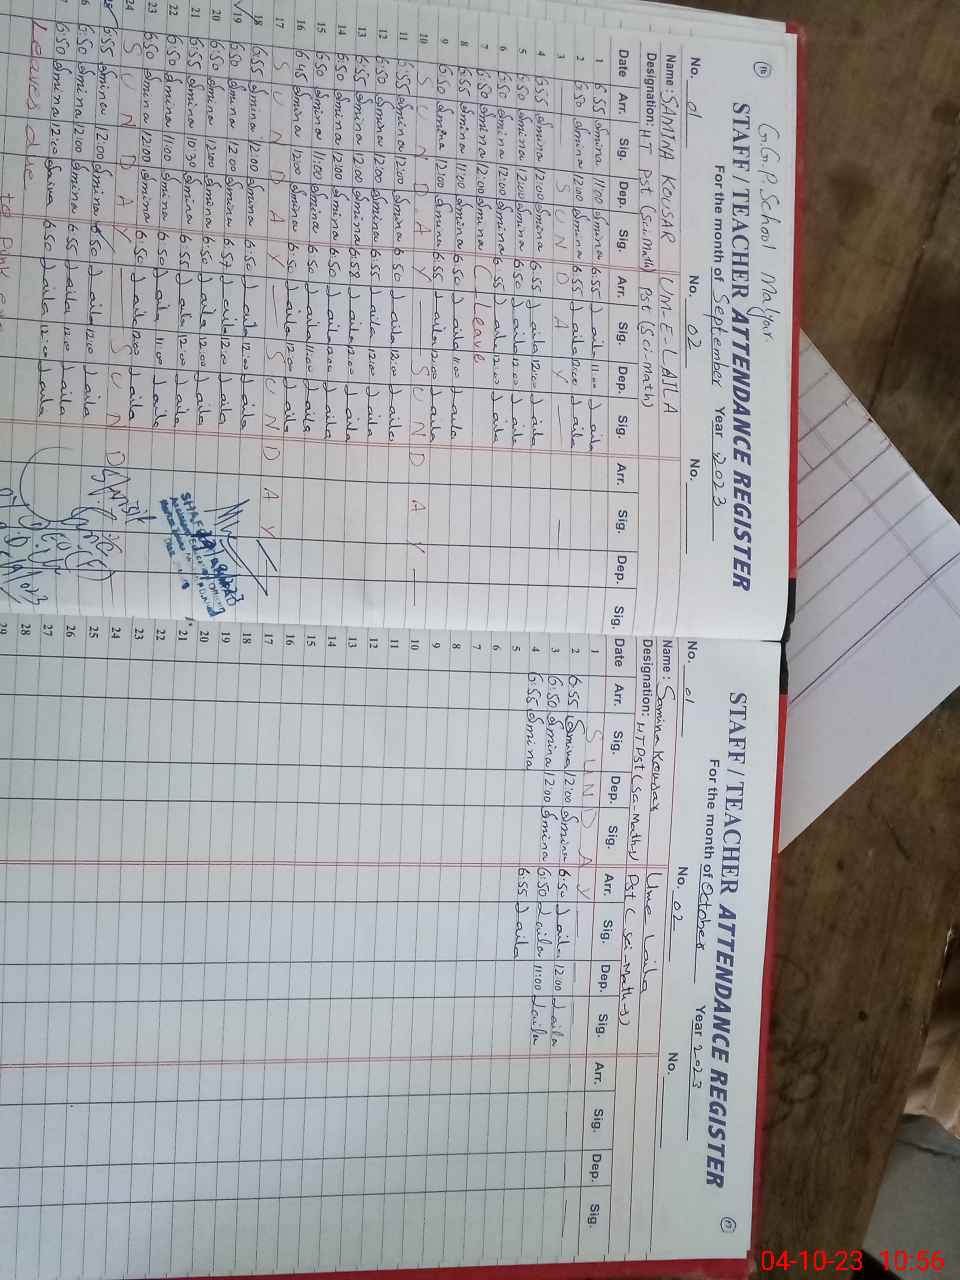 G.G.P.School Malyar.
STAFF / TEACHER ATTENDANCE REGISTER
For the month of September Year 2023
No. 01 No. 02 No.
Name: SAMINA KOUSAR UM-E-LAILA
Designation: HT Pst (Sci.Math) Pst (Sci-Math)
Date Arr. Sig. Dep. Sig. Arr. Sig. Dep. Sig. Arr. Sig. Dep. Sig.
1 6:55 Smina 11:00 Smina 6:55 Laila 11:00 Laila
2 6:50 Smina 12:00 Smina 6:55 Laila 12:00 Laila
3 S U N D A Y
4 6:55 Smina 12:00 Smina 6:55 Laila 12:00 Laila
5 6:50 Smina 12:00 Smina 6:50 Laila 12:00 Laila
6 6:50 Smina 12:00 Smina 6:55 Laila 12:00 Laila
7 6:50 Smina 12:00 Smina C Leave
8 6:55 Smina 11:00 Smina 6:50 Laila 11:00 Laila
9 6:50 Smina 12:00 Smina 6:55 Laila 12:00 Laila
10 S U N D A Y S U N D A Y
11 6:55 Smina 12:00 Smina 6:50 Laila 12:00 Laila
12 6:50 Smina 12:00 Smina 6:55 Laila 12:00 Laila
13 6:55 Smina 12:00 Smina 6:58 Laila 12:00 Laila
14 6:50 Smina 12:00 Smina 6:50 Laila 12:00 Laila
15 6:50 Smina 11:00 Smina 6:50 Laila 11:00 Laila
16 6:45 Smina 12:00 Smina 6:50 Laila 12:00 Laila
17 S U N D A Y S U N D A Y
18 6:55 Smina 12:00 Smina 6:50 Laila 12:00 Laila
19 6:50 Smina 12:00 Smina 6:57 Laila 12:00 Laila
20 6:50 Smina 12:00 Smina 6:50 Laila 12:00 Laila
21 6:55 Smina 10:30 Smina 6:55 Laila 12:00 Laila
22 6:50 Smina 11:00 Smina 6:50 Laila 11:00 Laila
23 6:50 Smina 12:00 Smina 6:50 Laila 12:00 Laila
24 S U N D A Y S U N D
6:55 Smina 12:00 Smina 6:50 Laila 12:00 Laila
6:50 Smina 12:00 Smina 6:55 Laila 12:00 Laila
6:50 Smina 12:00 Smina 6:50 Laila 12:00 Laila
Leaves due to Pink eye
STAFF / TEACHER ATTENDANCE REGISTER
For the month of October Year 2023
No. 01 No. 02 No.
Name: Samina Kousar Ume Laila
Designation: HTPst (Sci-Math) Pst (Sci-Math)
Date Arr. Sig. Dep. Sig. Arr. Sig. Dep. Sig. Arr. Sig. Dep. Sig.
1 S U N D A Y
2 6:55 Smina 12:00 Smina 6:50 Laila 12:00 Laila
3 6:50 Smina 12:00 Smina 6:50 Laila 11:00 Laila
4 6:55 Smina 6:55 Laila
5
6
7
8
9
10
11
12
13
14
15
16
17
18
19
20
21
22
23
24
25
26
27
28
29
04-10-23 10:56